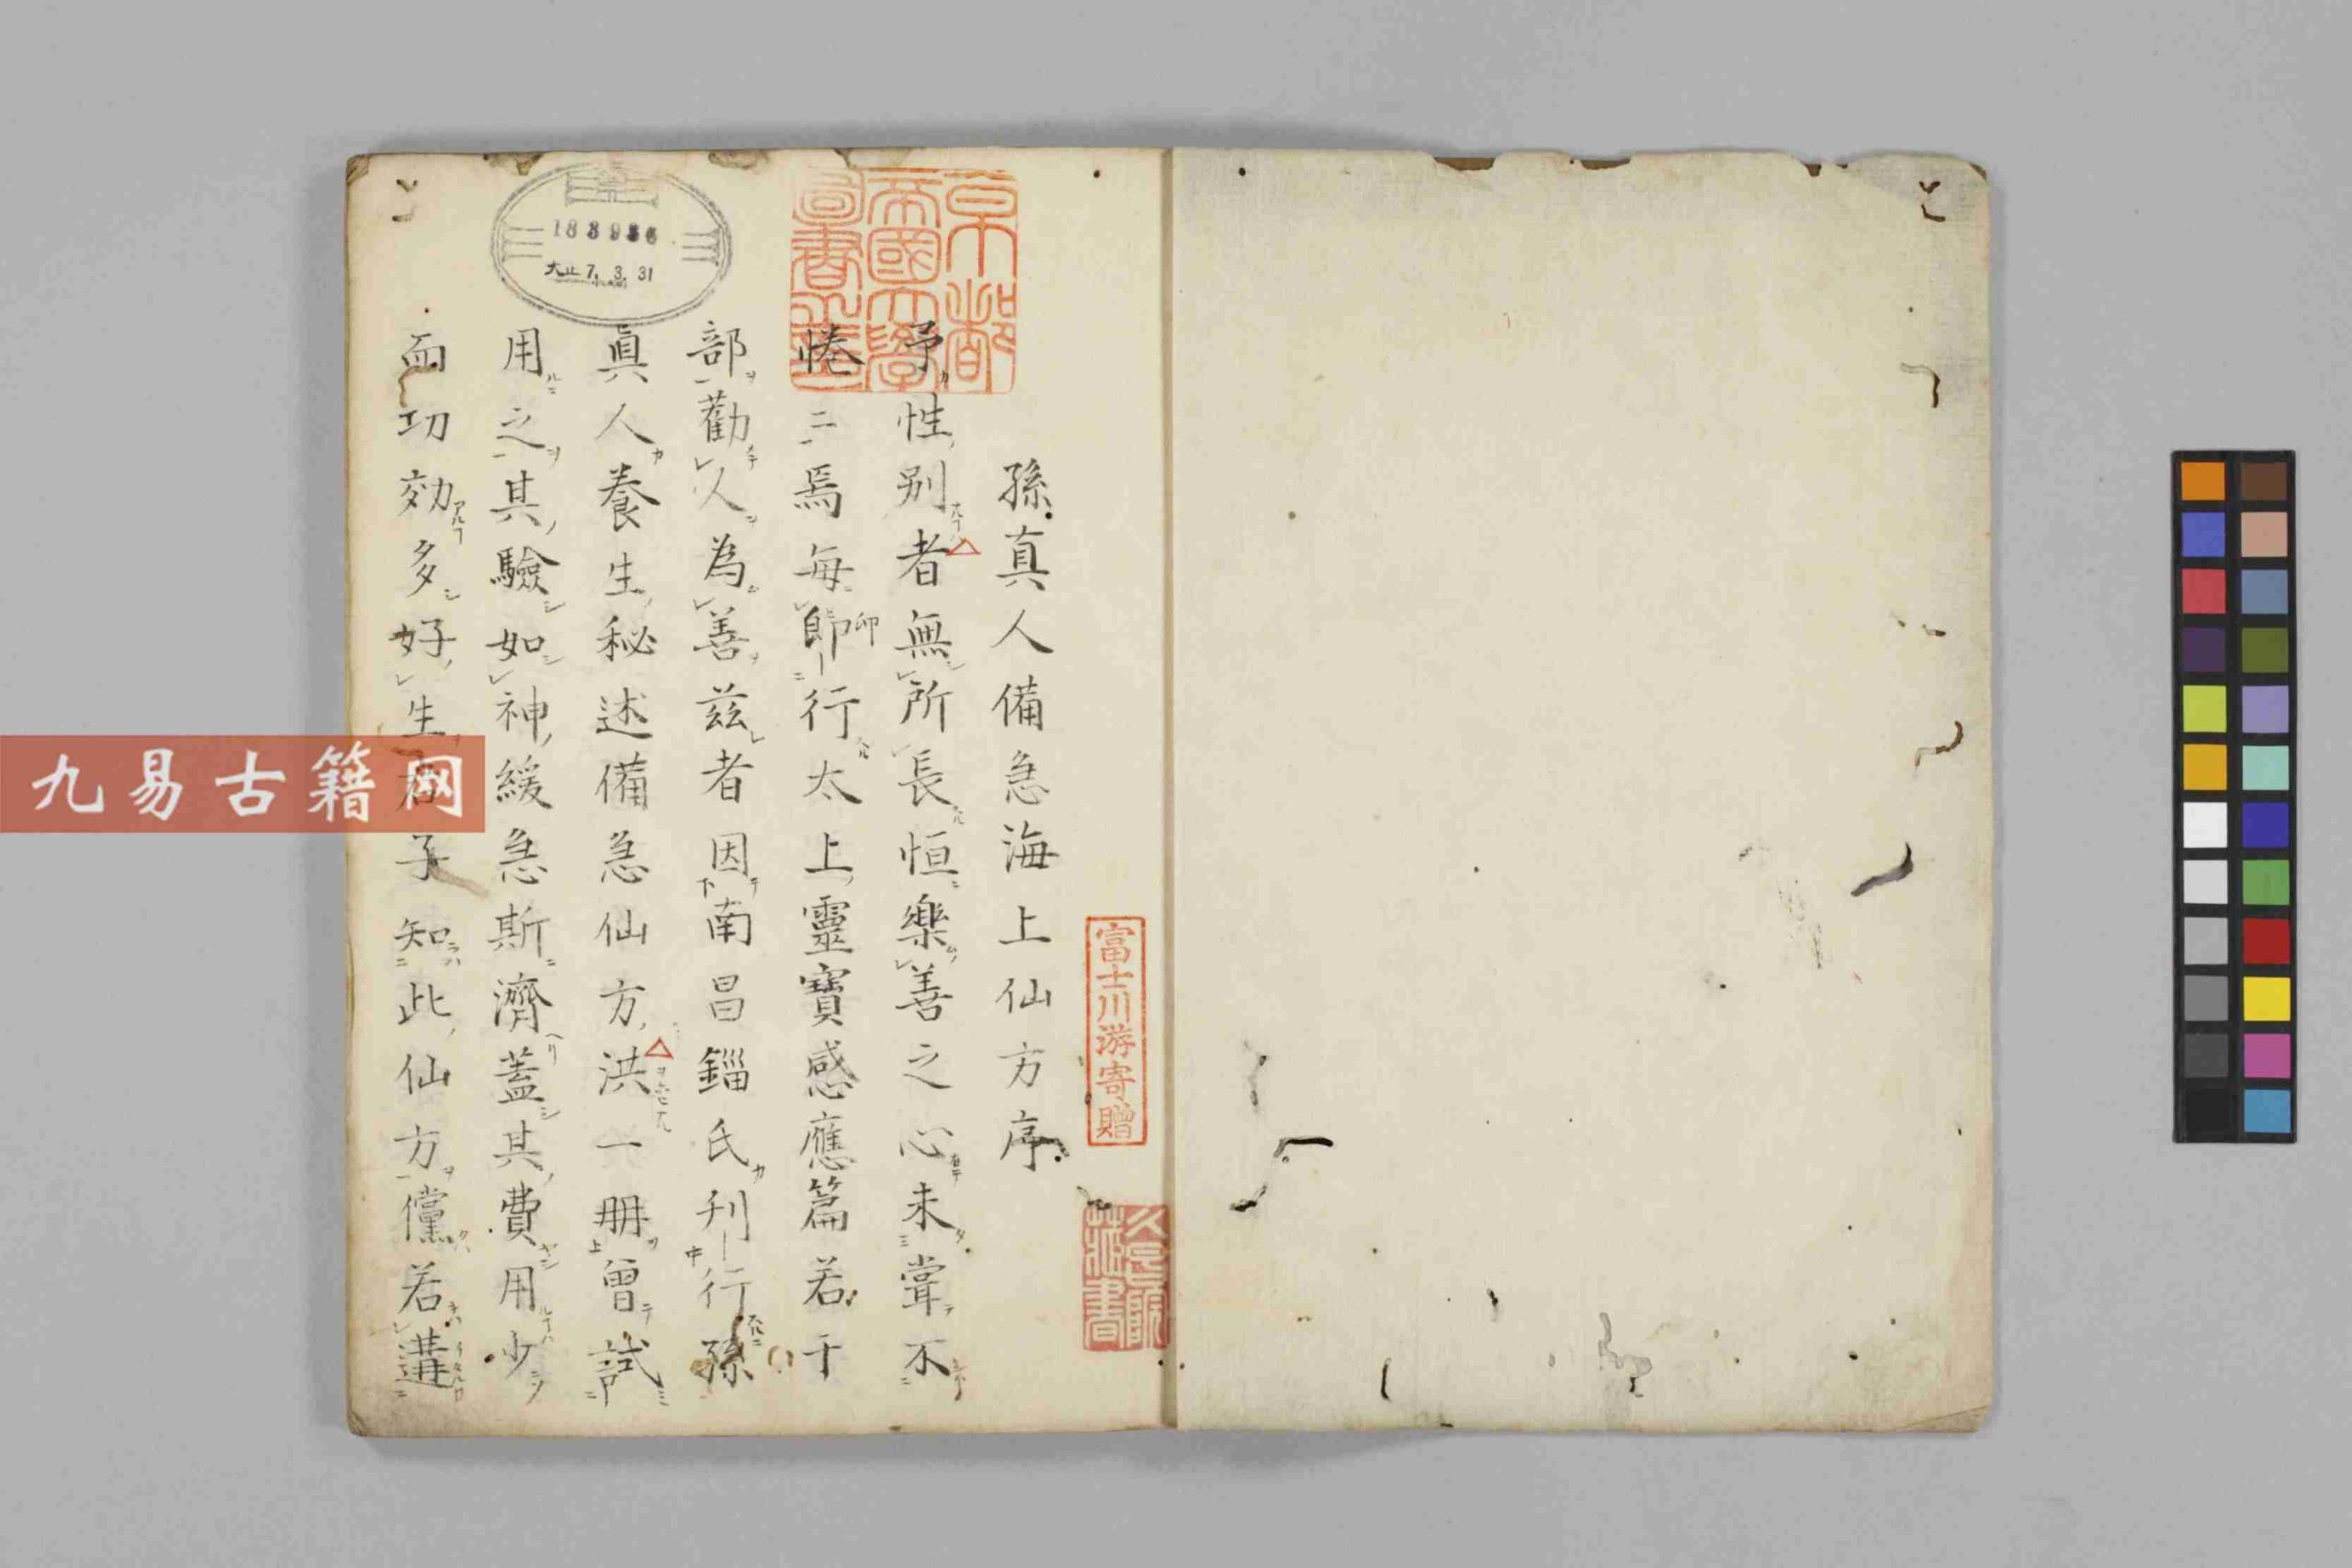 孫真人備急海上仙方序
予性別者無所長恒樂善之心未甞不
惓二焉每節行太上靈寶感應篇若干
部勸人為善兹者因南昌錙氏刊行孫
眞人養生秘述備急仙方洪一册曾試
用之其驗如神緩急斯濟葢其費用少
而功効多好生君子知此仙方儻若遘
印
京都
帝國大學
圖書之印
富士川游寄贈
藏書
183986
大正 7. 3. 31
九易古籍网